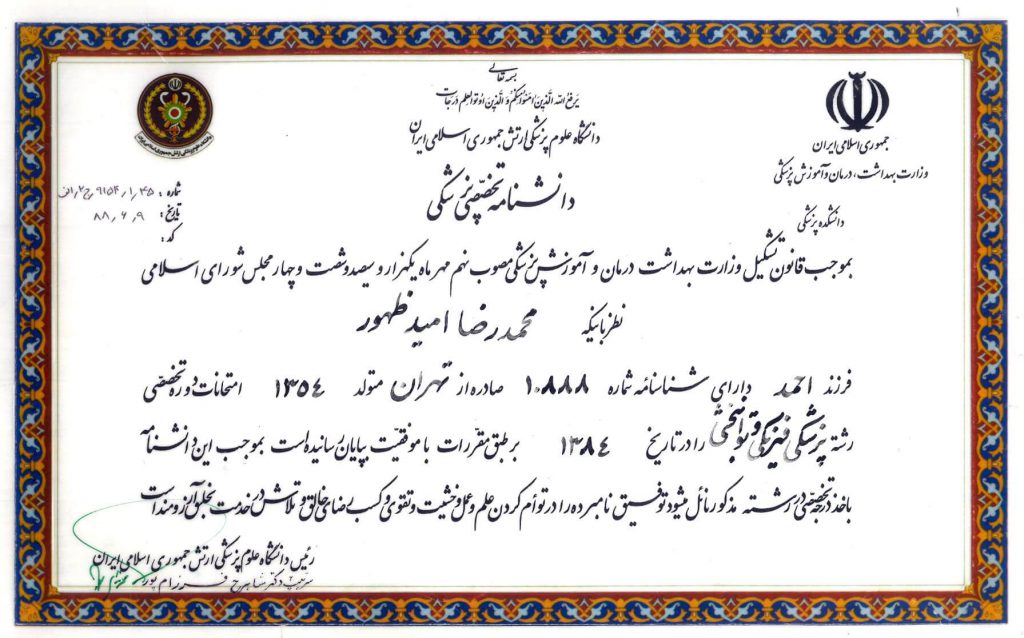 بسمه تعالی
یرفع الله الذین امنوا منکم و الذین اوتوا العلم درجات
دانشگاه علوم پزشکی ارتش جمهوری اسلامی ایران
دانشنامه تخصصی پزشکی
جمهوری اسلامی ایران
وزارت بهداشت، درمان و آموزش پزشکی
دانشکده پزشکی
شماره :
تاریخ : ۸۸٫۶٫۹
کد :
بموجب قانون تشکیل وزارت بهداشت درمان و آموزش پزشکی مصوب نهم مهر ماه یکهزار و سیصد و شصت و چهار مجلس شورای اسلامی
نظر باینکه محمدرضا امید ظهور
فرزند احمد دارای شناسنامه شماره ۱۰۸۸۸ صادره از تهران متولد ۱۳۵٤ امتحانات دوره تخصصی
رشته پزشکی فیزیکی و توانبخشی را در تاریخ ۱۳۸٤ بر طبق مقررات با موفقیت بپایان رسانیده است بموجب این دانشنامه
باخذ درجه تخصصی در رشته مذکور نائل میشود توفیق نامبرده را در توأم کردن علم و عمل و خشیت و تقوی و کسب رضای خالق و تلاش در خدمت بخلق آرزومند است
رئیس دانشگاه علوم پزشکی ارتش جمهوری اسلامی ایران
سرتیپ ۲ دکتر شاهرخ فرزام پور